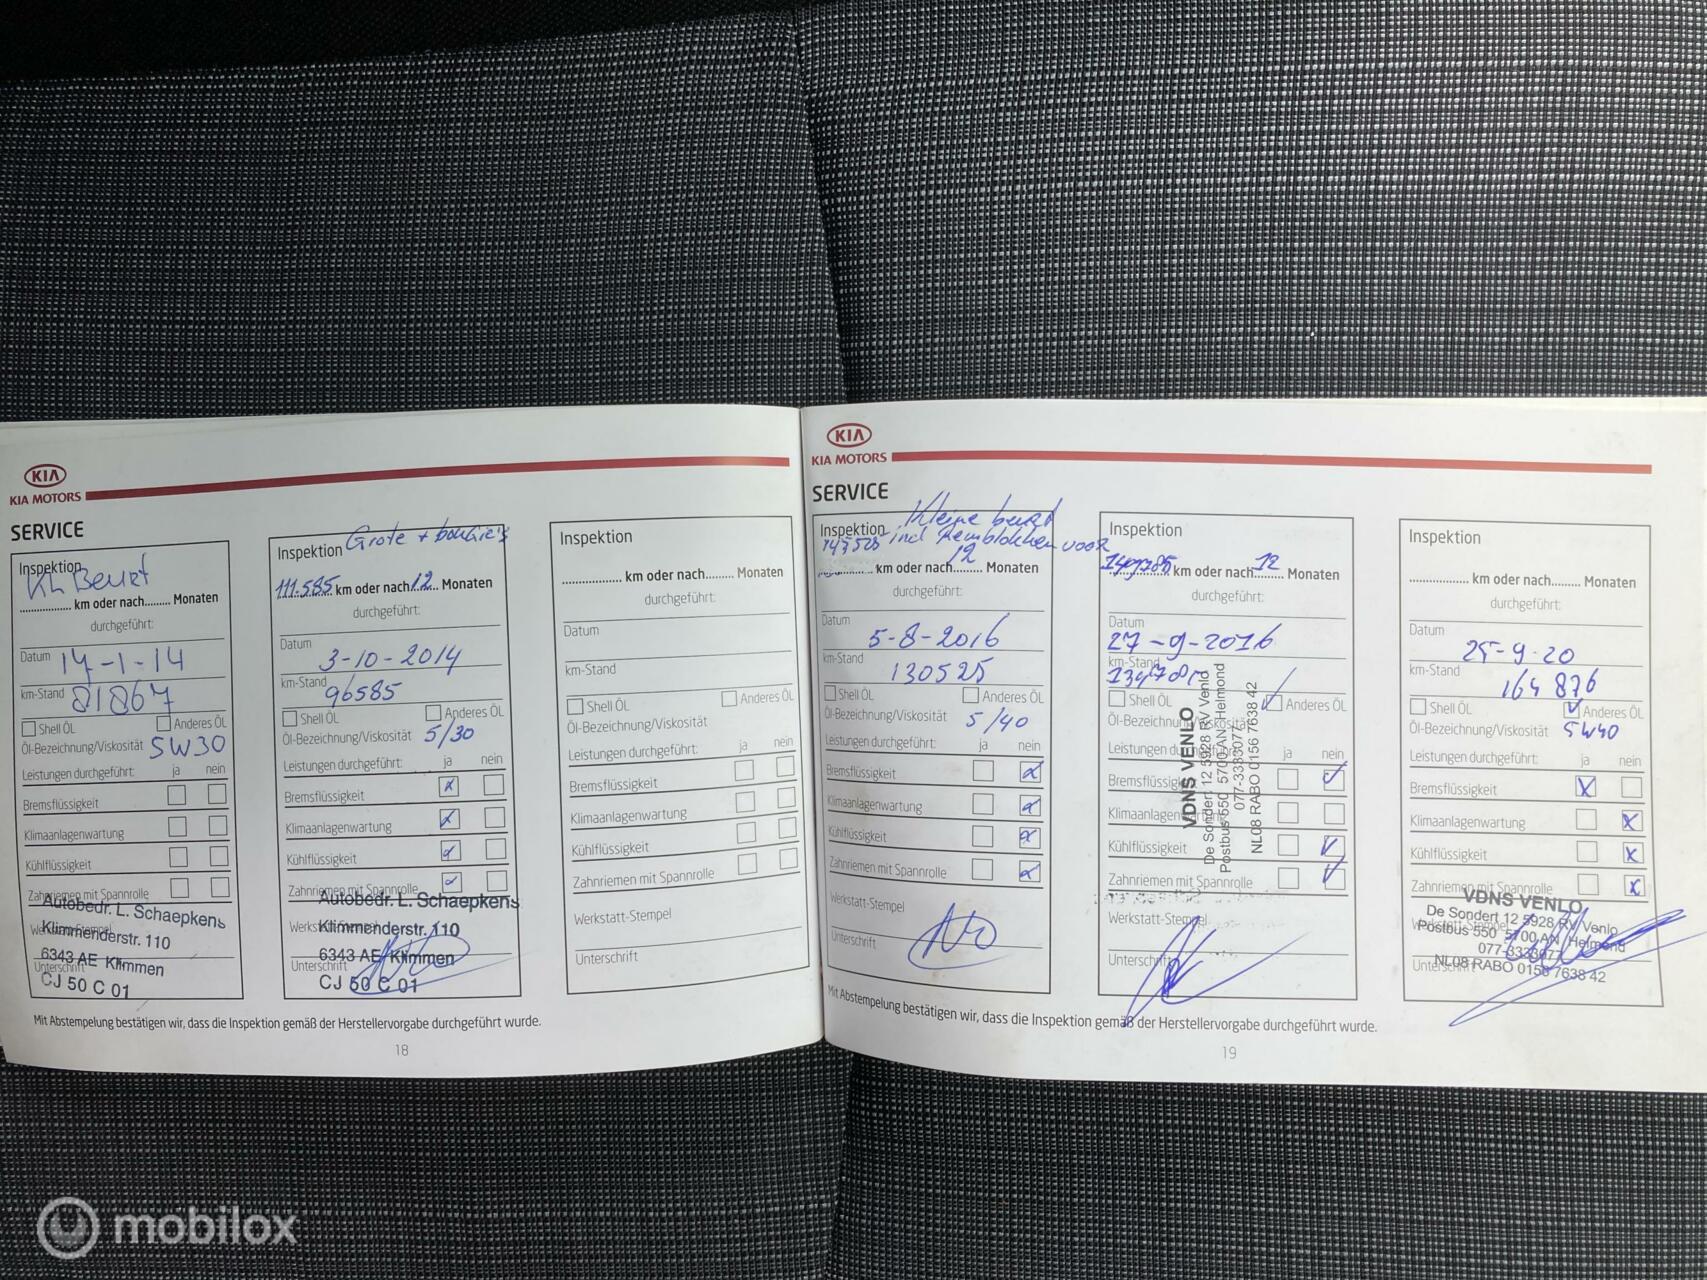 KIA
KIA MOTORS
SERVICE
Inspektion
Kl Beurt
.................. km oder nach......... Monaten
durchgeführt:
Datum 14-1-14
km-Stand 81867
Shell ÖL Anderes ÖL
Öl-Bezeichnung/Viskosität 5W30
Leistungen durchgeführt: ja nein
Bremsflüssigkeit
Klimaanlagenwartung
Kühlflüssigkeit
Zahnriemen mit Spannrolle
Autobedr. L. Schaepkens
Werkstatt-Stempel
Klimmenderstr. 110
6343 AE Klimmen
Unterschrift
CJ 50 C 01
Inspektion Grote + bougie's
111.585 km oder nach 12 Monaten
durchgeführt:
Datum
3-10-2014
km-Stand
96585
Shell ÖL Anderes ÖL
Öl-Bezeichnung/Viskosität 5/30
Leistungen durchgeführt: ja nein
Bremsflüssigkeit x
Klimaanlagenwartung x
Kühlflüssigkeit x
Zahnriemen mit Spannrolle x
Autobedr. L. Schaepkens
Klimmenderstr. 110
6343 AE Klimmen
Unterschrift
CJ 50 C 01
Inspektion
.................. km oder nach......... Monaten
durchgeführt:
Datum
km-Stand
Shell ÖL Anderes ÖL
Öl-Bezeichnung/Viskosität
Leistungen durchgeführt: ja nein
Bremsflüssigkeit
Klimaanlagenwartung
Kühlflüssigkeit
Zahnriemen mit Spannrolle
Werkstatt-Stempel
Unterschrift
Mit Abstempelung bestätigen wir, dass die Inspektion gemäß der Herstellervorgabe durchgeführt wurde.
18
KIA
KIA MOTORS
SERVICE
Kleine beurt
Inspektion
incl Remblokken voor
km oder nach 12 Monaten
durchgeführt:
Datum
5-8-2016
km-Stand
130525
Shell ÖL Anderes ÖL
Öl-Bezeichnung/Viskosität 5/40
Leistungen durchgeführt: ja nein
Bremsflüssigkeit x
Klimaanlagenwartung x
Kühlflüssigkeit x
Zahnriemen mit Spannrolle x
Werkstatt-Stempel
Unterschrift
Inspektion
km oder nach 12 Monaten
durchgeführt:
Datum
27-9-2016
km-Stand
Shell ÖL Anderes ÖL
Öl-Bezeichnung/Viskosität
Leistungen durchgeführt: ja nein
Bremsflüssigkeit
Klimaanlagenwartung
Kühlflüssigkeit
Zahnriemen mit Spannrolle
VDNS VENLO
De Sondert 12 5928 RV Venlo
Postbus 550 5700 AN Helmond
077-3333077
NL08 RABO 0156 7638 42
Werkstatt-Stempel
Unterschrift
Inspektion
.................. km oder nach......... Monaten
durchgeführt:
Datum
25-9-20
km-Stand
164 876
Shell ÖL Anderes ÖL
Öl-Bezeichnung/Viskosität 5W40
Leistungen durchgeführt: ja nein
Bremsflüssigkeit x
Klimaanlagenwartung x
Kühlflüssigkeit x
Zahnriemen mit Spannrolle x
VDNS VENLO
De Sondert 12 5928 RV Venlo
Postbus 550 5700 AN Helmond
077-3333077
NL08 RABO 0156 7638 42
Unterschrift
Mit Abstempelung bestätigen wir, dass die Inspektion gemäß der Herstellervorgabe durchgeführt wurde.
19
mobilox